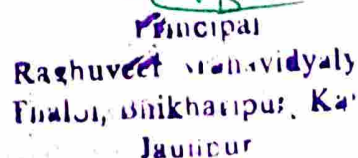 Principal
Raghuveer Mahavidyaly
Thaloi, Bhikharipur, Ka
Jaunpur